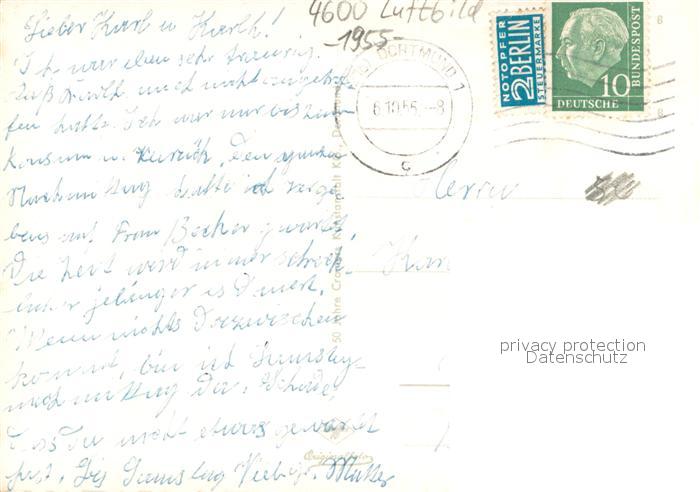 4600 Luftbild
-1955-
Lieber Karl u. Karlh!
Ich war eben sehr traurig,
daß Karlh mich nicht angetrof-
fen hatte. Ich war nur bis zum
Konsum u. zurück, den ganzen
Nachmittag hatte ich verge-
bens auf Frau Becker gewartet.
Die Zeit wird immer schreck-
licher je länger es dauert.
Wenn nichts dazwischen
kommt, bin ich Samstag-
nachmittag da. Schade,
daß Du nicht etwas gewartet
hast. Bis Samstag Mutter
DORTMUND 1
6.10.55.-8
c
NOTOPFER
2 BERLIN
STEUERMARKE
10
DEUTSCHE
BUNDESPOST
8
8
Herrn
Kar
50 Jahre Cramers Kunstanstalt KG., Dortmund
Originalfoto
privacy protection
Datenschutz